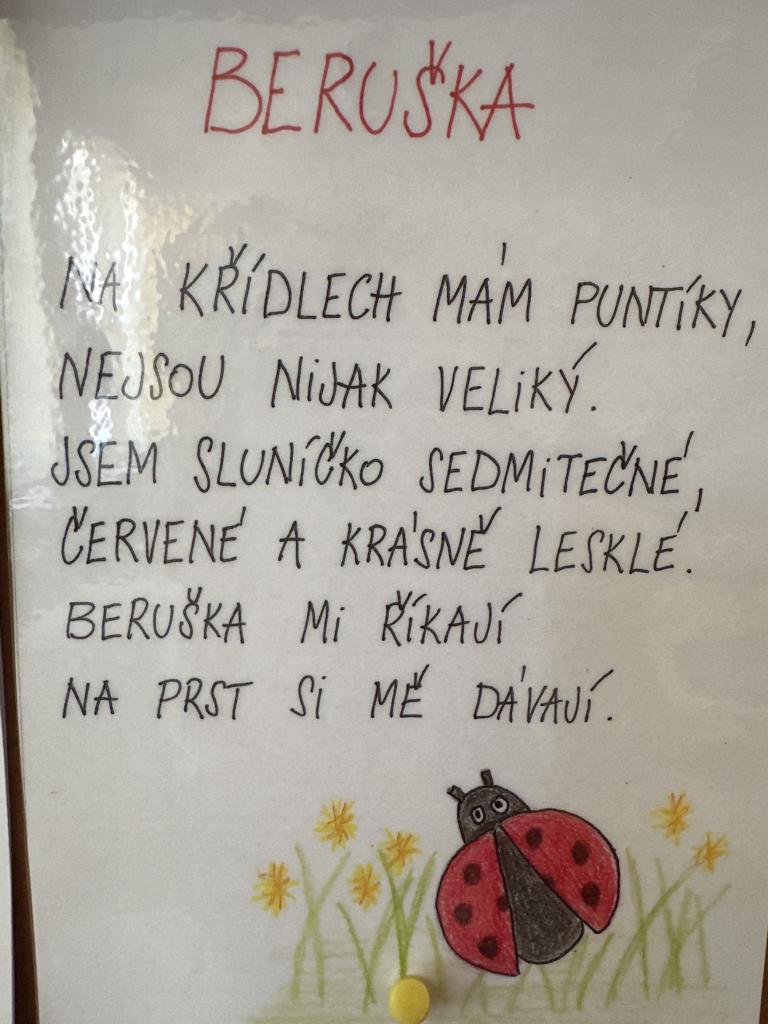 BERUŠKA
NA KŘÍDLECH MÁM PUNTÍKY,
NEJSOU NIJAK VELIKÝ.
JSEM SLUNÍČKO SEDMITEČNÉ,
ČERVENÉ A KRÁSNĚ LESKLÉ.
BERUŠKA MI ŘÍKAJÍ
NA PRST SI MĚ DÁVAJÍ.